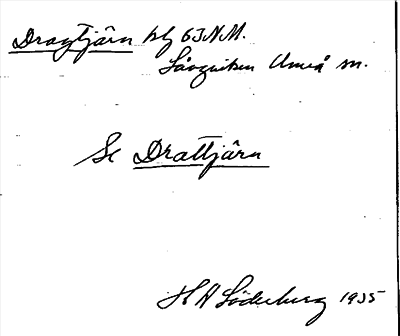 Dragtjärn bl 63NM.
Sävar Umeå sn.
Se Drattjärn
H A Söderberg 1935